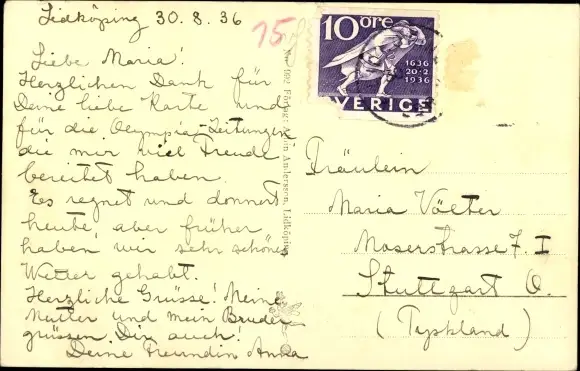 Lidköping 30.8.36
15
Liebe Maria!
Herzlichen Dank für
Deine liebe Karte und
für die Olympia-Zeitungen
die mir viel Freude
bereitet haben.
Es regnet und donnert
heute, aber früher
haben wir sehr schönes
Wetter gehabt.
Herzliche Grüsse! Meine
Mutter und mein Bruder
grüssen Dich auch!
Deine Freundin Anna
Förlag: Alvin Andersson, Lidköping
10 öre
1636
20-2
1936
SVERIGE
Fräulein
Maria Völter
Moserstrasse 7. I
Stuttgart O.
(Tyskland)